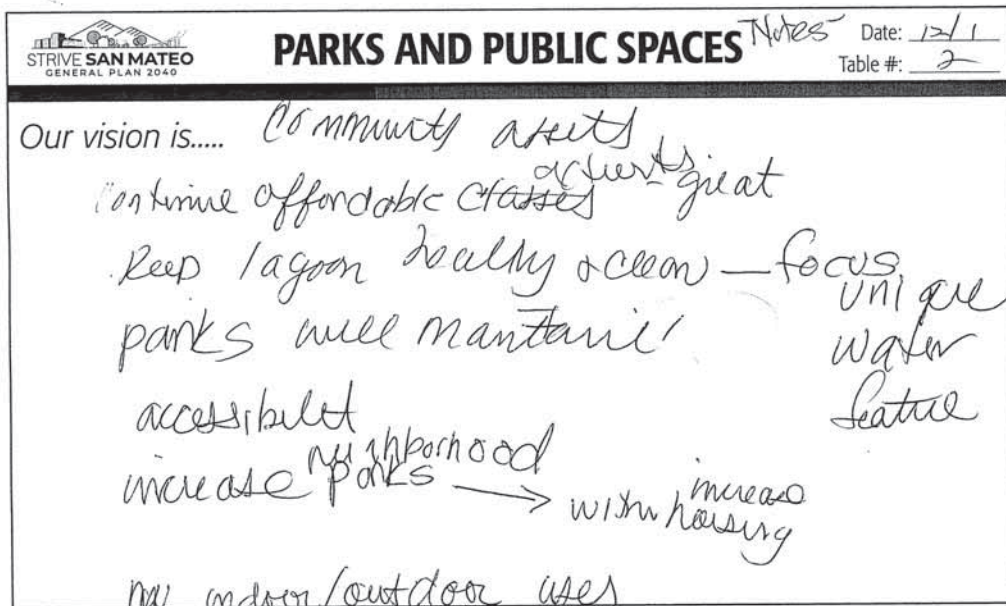 STRIVE SAN MATEO
GENERAL PLAN 2040
PARKS AND PUBLIC SPACES Notes
Date: 12/1
Table #: 2
Our vision is..... Community assets
Continue affordable classes great
Keep lagoon healthy & clean — focus
unique
water
feature
parks well
accessibilit
increase neighborhood parks → with increase housing
indoor/outdoor uses